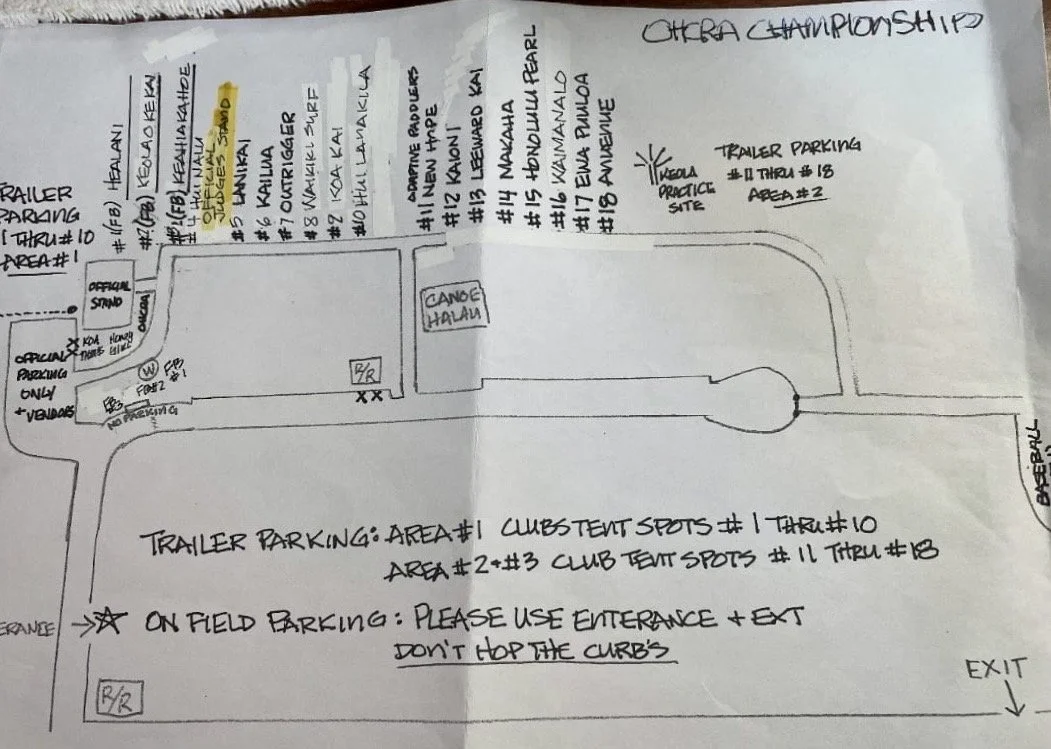 OHCRA CHAMPIONSHIPS
TRAILER
PARKING
1 THRU #10
AREA #1
#1(FB) HEALANI
#2(FB) KEOLAOKEKAI
#3(FB) KEAHIAKAHOE
#4 HUI NALU
OFFICIAL
JUDGES STAND
#5 LANIKAI
#6 KAILUA
#7 OUTRIGGER
#8 WAIKIKI SURF
#9 KOA KAI
#10 HUI LANAKILA
ADAPTIVE PADDLERS
#11 NEW HOPE
#12 KAIONI
#13 LEEWARD KAI
#14 MAKAHA
#15 HONOLULU PEARL
#16 WAIMANALO
#17 EWA PUULOA
#18 ANUENUE
KEOLA
PRACTICE
SITE
TRAILER PARKING
#11 THRU #18
AREA #2
OFFICIAL
STAND
OHCRA
CANOE
HALAU
KOA
OFFICIAL
PARKING
ONLY
+ VENDORS
W
FB
#1
FB#2
FB
#3
NO PARKING
R/R
XX
BASEBALL
TRAILER PARKING: AREA #1 CLUBS TENT SPOTS # 1 THRU #10
AREA #2+#3 CLUB TENT SPOTS #11 THRU #18
ERANCE → ON FIELD PARKING: PLEASE USE ENTERANCE + EXT
DON'T HOP THE CURB'S
R/R
EXIT